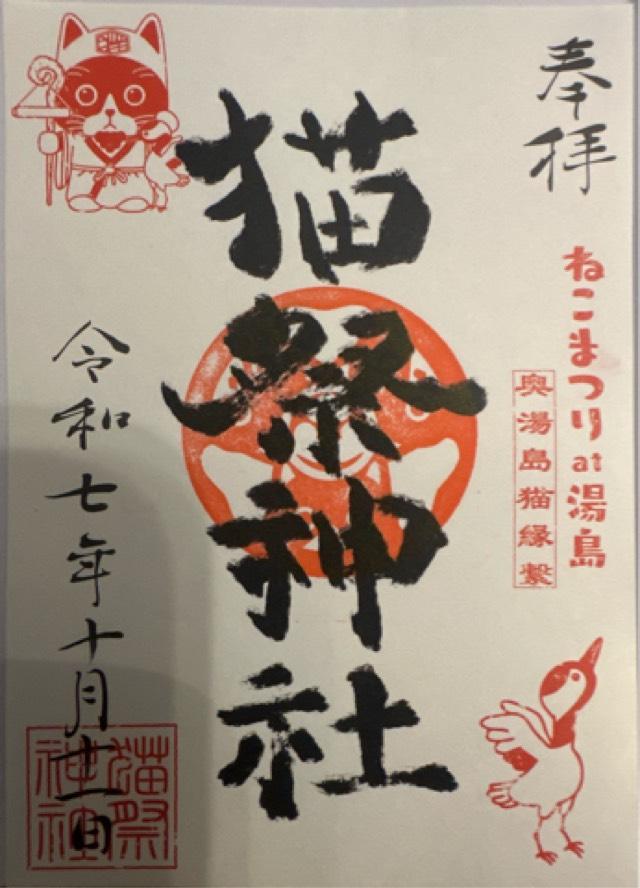 奉拝
ねこまつりat湯島
奥湯島猫縁繋
猫祭神社
令和七年十月十一日
猫祭
神社
猫